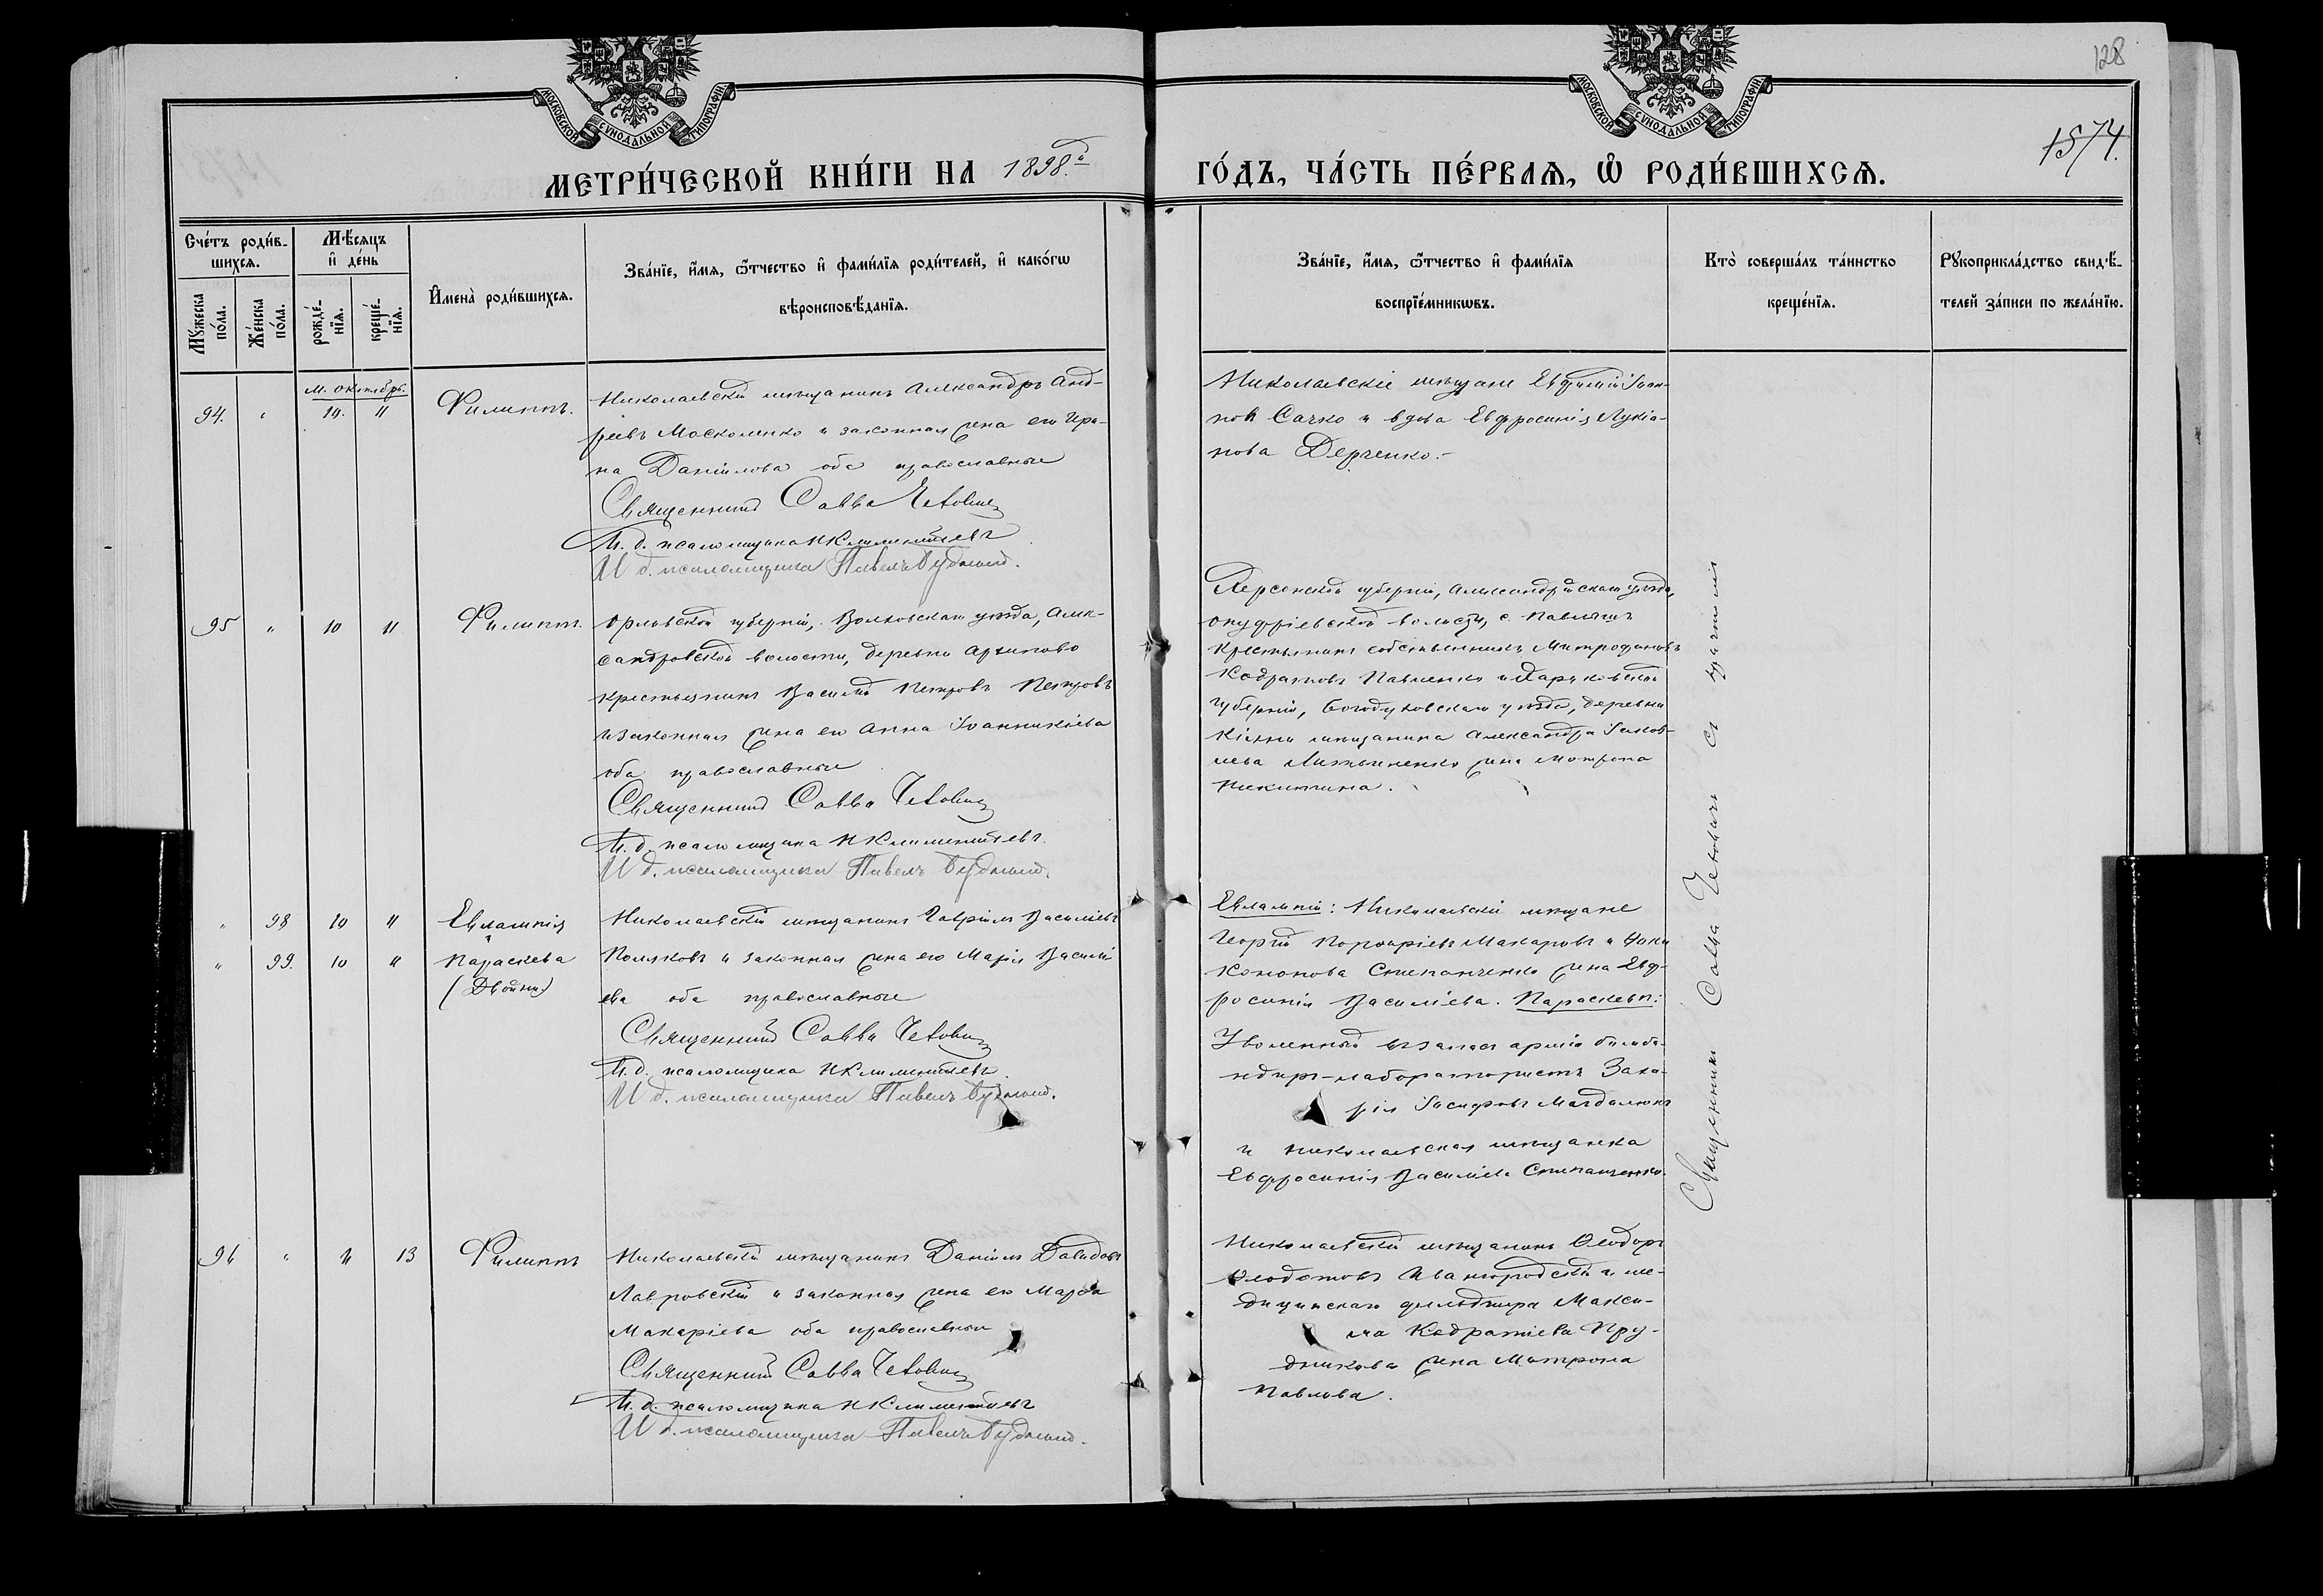 128
1574.
МОСКОВСКОЙ СѴНОДАЛЬНОЙ ТИПОГРАФІИ
МОСКОВСКОЙ СѴНОДАЛЬНОЙ ТИПОГРАФІИ
МЕТРИ́ЧЕСКОЙ КНИ́ГИ НА 1898.й
ГО́ДЪ, ЧА́СТЬ ПЕ́РВАѦ, Ѽ РОДИ́ВШИХСѦ.
Сче́тъ роди́в-
шихсѧ.
Мꙋ́жеска по́ла.
Же́нска по́ла.
Мѣ́сѧцъ
и҆ де́нь
рожде́-
нїѧ.
креще́-
нїѧ.
И҆мена̀ роди́вшихсѧ.
Зва́нїе, и҆́мѧ, ѻ҆́тчество и҆ фами́лїѧ роди́телей, и҆ како́гѡ
вѣроисповѣ́данїѧ.
Зва́нїе, и҆́мѧ, ѻ҆́тчество и҆ фами́лїѧ
воспрїе́мникѡвъ.
Кто̀ соверша́лъ та́инство
креще́нїѧ.
Рꙋкоприкла́дство свидѣ́-
телей за́писи по жела́нїю.
М. Октябрь.
94. " 10. 11 Филиппъ.
Николаевскій мѣщанинъ Александръ Анд-
реевъ Москаленко и законная жена его Ири-
на Даніилова оба православные
Священникъ Савва Четовичъ
И. д. псаломщика Н Климентьевъ
И д. псаломщика Павелъ
Николаевскіе мѣщане Евфимій Іоан-
новъ Сачко и вдова Евфросинія Лукіа-
нова Дерченко.-
95 " 10 11 Филиппъ.
Орловской губерніи, Волховскаго уѣзда, Алек-
сандровской волости, деревни Архипово
крестьянинъ Василій Петровъ Петровъ
и законная жена его Анна Іоанникіева
оба православные
Священникъ Савва Четовичъ
И. д. псаломщика Н Климентьевъ.
И д. псаломщика Павелъ
Херсонской губерніи, Александрійскаго уѣзда,
Онуфріевской волости, с. Павлышъ
крестьянинъ собственникъ Митрофанъ
Кодратовъ Павленко и Харьковской
губерніи, Богодуховскаго уѣзда, деревни
мѣщанина Александра Іаков-
лева Литвиненко жена Матрона
Никитина.
" 98 10 11 Евлампія
" 99. 10 11 Параскева
(Двойни)
Николаевскій мѣщанинъ Гавріилъ Василіевъ
Поляковъ и законная жена его Марія Василі-
ева оба православные
Священникъ Савва Четовичъ
И. д. псаломщика Н Климентьевъ.
И д. псаломщика Павелъ
Евлампіи: Николаевскіе мѣщане
Георгій Порфиріевъ Макаровъ и
Кононова Степанченко жена Евф-
росинія Василіева. Параскевы:
Уволенный въ запасъ арміи бомба-
ндиръ-лаборатористъ Заха-
рія Іосифовъ Магдалюкъ
и николаевская мѣщанка
Евфросинія Василіева Степанченко.
96 " 11 13 Филиппъ
Николаевскій мѣщанинъ Даніилъ Давидовъ
Лавровскій и законная жена его Марѳа
Макаріева оба православные
Священникъ Савва Четовичъ
И. д. псаломщика Н Климентьевъ
И д. псаломщика Павелъ
Николаевскій мѣщанинъ Ѳеодоръ
Ѳеодотовъ Ивангородскій и ме-
дицинскаго фельдшера Макси-
ма Кодратіева Пру-
дникова жена Матрона
Павлова.
Священникъ Савва Четовичъ съ причтомъ